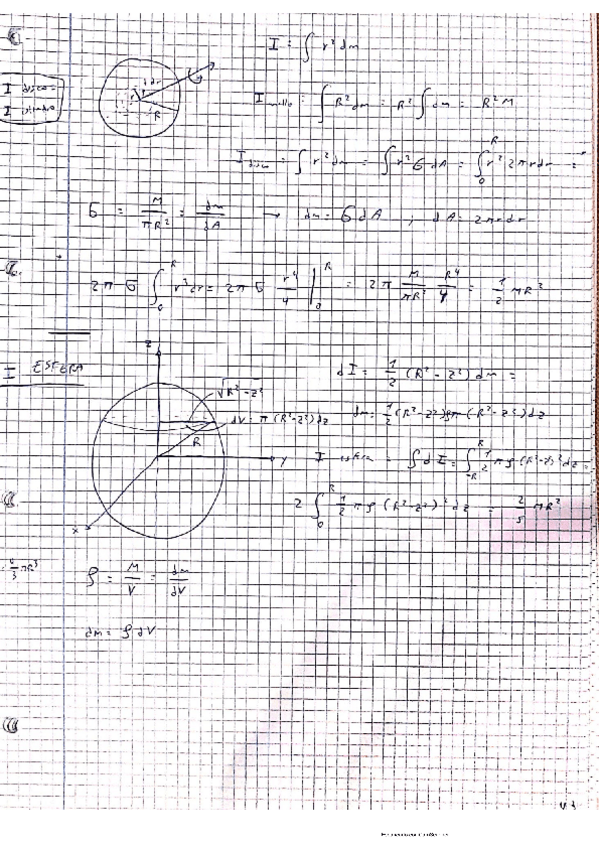 I = ∫ r² dm
I disco =
I cilindro
dr
r
R
I anillo = ∫ R² dm = R² ∫ dm = R² M
I disco = ∫ r² dm = ∫ r² σ dA = ∫₀ᴿ r² 2π r dr =
σ = M/πR² = dm/dA → dm = σ dA ; dA = 2πr dr
2π σ ∫₀ᴿ r³ dr = 2π σ r⁴/4 |₀ᴿ = 2π M/πR² R⁴/4 = 1/2 MR²
I ESFERA
z
√R² - z²
dV = π (R² - z²) dz
R
y
x
dI = 1/2 (R² - z²) dm =
dm = 1/2 (R² - z²) ρπ (R² - z²) dz
I esfera = ∫ dI = ∫₋ᴿᴿ 1/2 π ρ (R² - z²)² dz =
2 ∫₀ᴿ 1/2 π ρ (R² - z²)² dz = 2/5 MR²
4/3 πR³
ρ = M/V = dm/dV
dm = ρ dV